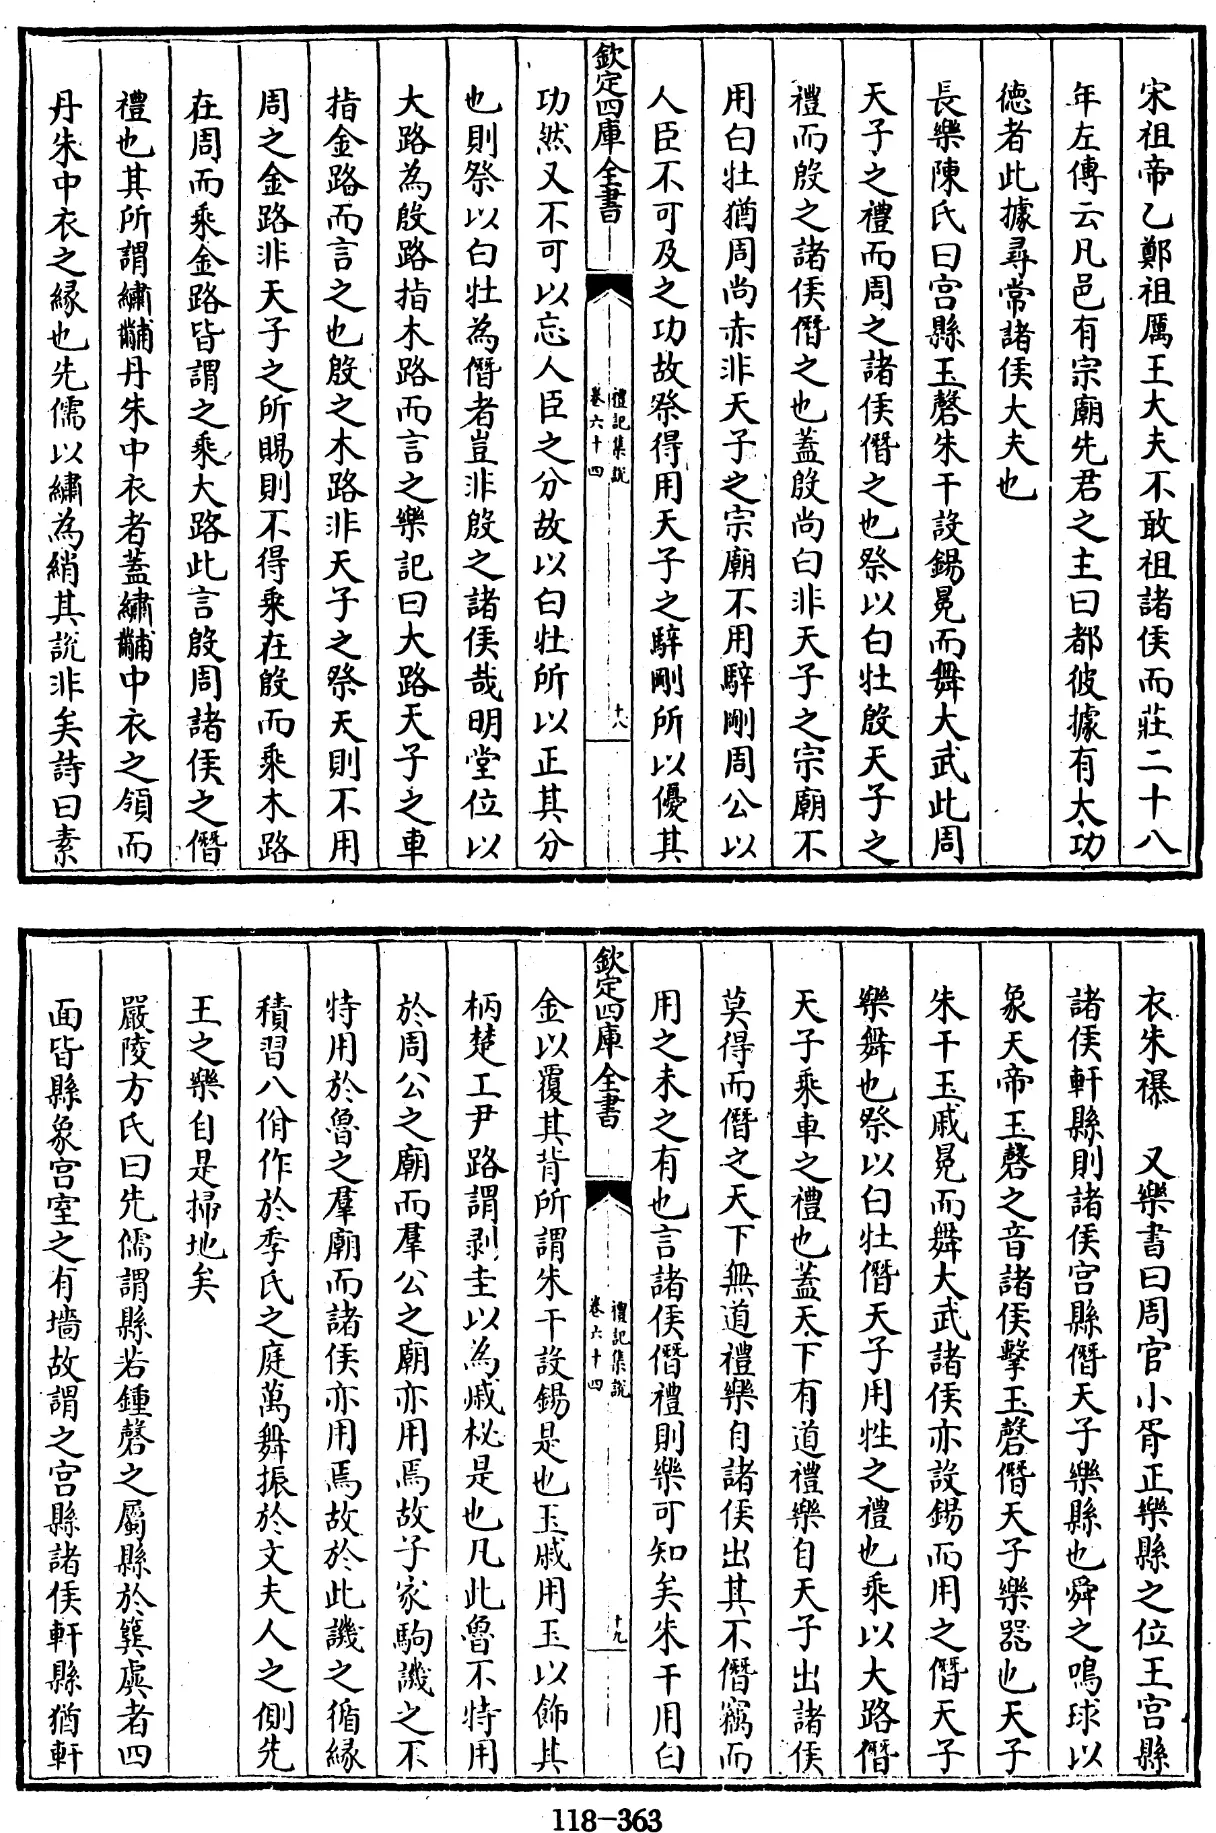 宋祖帝乙鄭祖厲王大夫不敢祖諸侯而莊二十八
年左傳云凡邑有宗廟先君之主曰都彼據有大功
徳者此據尋常諸侯大夫也
長樂陳氏曰宫縣玉磬朱干設錫冕而舞大武此周
天子之禮而周之諸侯僭之也祭以白牡殷天子之
禮而殷之諸侯僭之也蓋殷尚白非天子之宗廟不
用白牡猶周尚赤非天子之宗廟不用騂剛周公以
人臣不可及之功故祭得用天子之騂剛所以優其
欽定四庫全書
禮記集說
卷六十四
十八
功然又不可以忘人臣之分故以白牡所以正其分
也則祭以白牡為僭者豈非殷之諸侯哉明堂位以
大路為殷路指木路而言之樂記曰大路天子之車
指金路而言之也殷之木路非天子之祭天則不用
周之金路非天子之所賜則不得乘在殷而乘木路
在周而乘金路皆謂之乘大路此言殷周諸侯之僭
禮也其所謂繡黼丹朱中衣者蓋繡黼中衣之領而
丹朱中衣之縁也先儒以繡為綃其說非矣詩曰素
衣朱襮　又樂書曰周官小胥正樂縣之位王宫縣
諸侯軒縣則諸侯宫縣僭天子樂縣也舜之鳴球以
象天帝玉磬之音諸侯擊玉磬僭天子樂器也天子
朱干玉戚冕而舞大武諸侯亦設錫而用之僭天子
樂舞也祭以白牡僭天子用牲之禮也乘以大路僭
天子乘車之禮也蓋天下有道禮樂自天子出諸侯
莫得而僭之天下無道禮樂自諸侯出其不僭竊而
用之未之有也言諸侯僭禮則樂可知矣朱干用白
欽定四庫全書
禮記集說
卷六十四
十九
金以覆其背所謂朱干設錫是也玉戚用玉以飾其
柄楚工尹路謂剥圭以為戚柲是也凡此魯不特用
於周公之廟而羣公之廟亦用焉故子家駒譏之不
特用於魯之羣廟而諸侯亦用焉故於此譏之循縁
積習八佾作於季氏之庭萬舞振於文夫人之側先
王之樂自是掃地矣
嚴陵方氏曰先儒謂縣若鍾磬之屬縣於簨虡者四
面皆縣象宫室之有墻故謂之宫縣諸侯軒縣猶軒
118-363